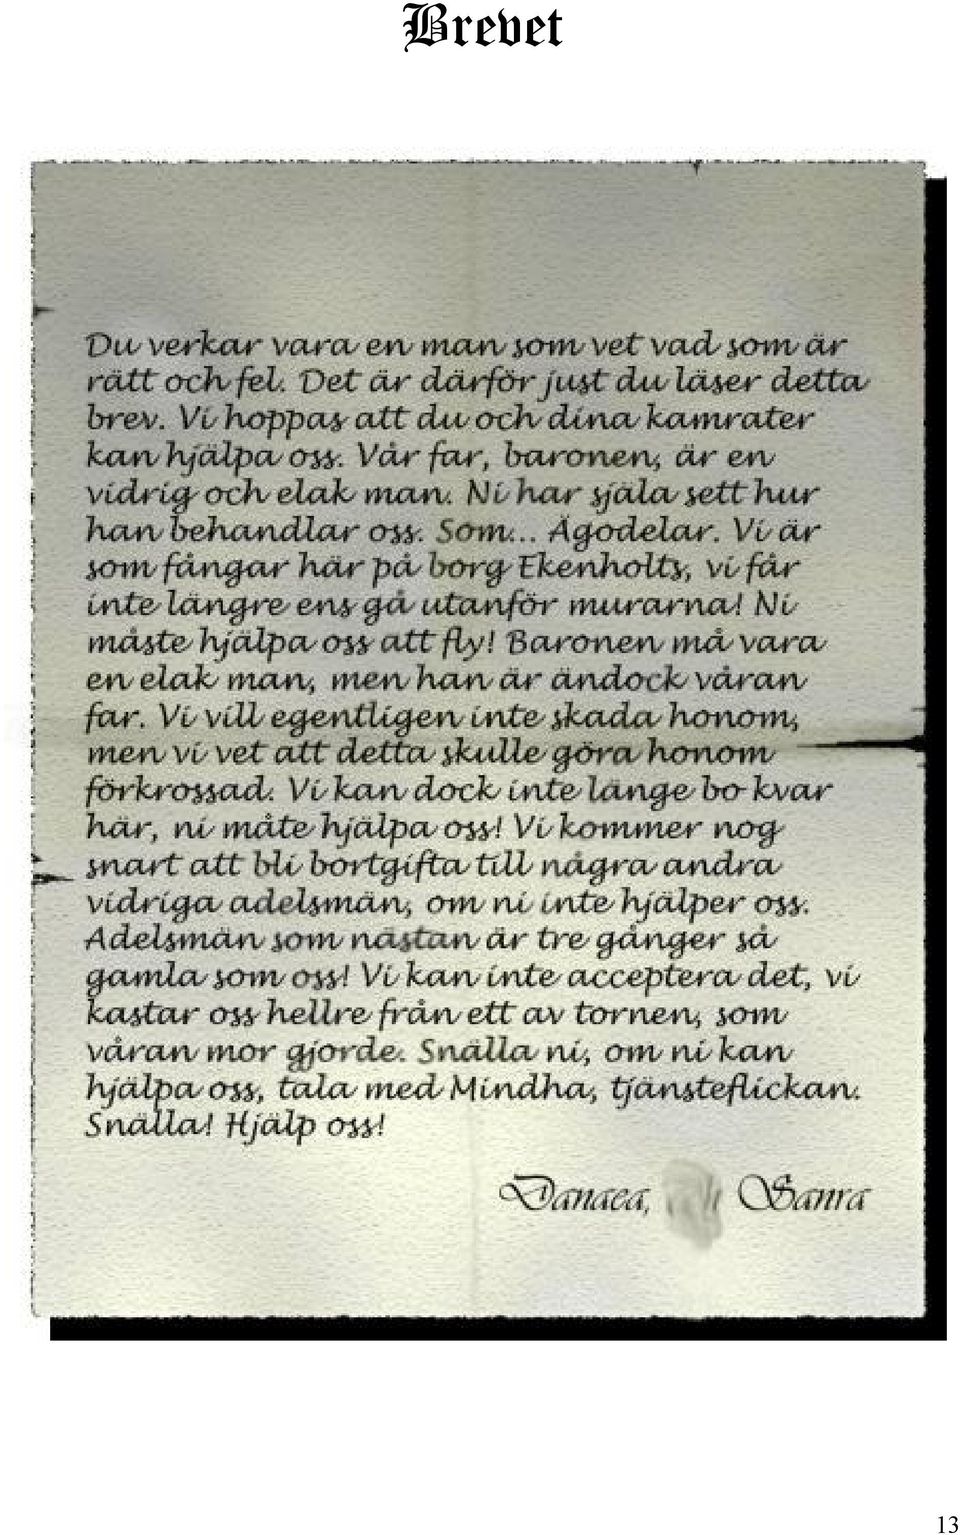 Brevet
Du verkar vara en man som vet vad som är
rätt och fel. Det är därför just du läser detta
brev. Vi hoppas att du och dina kamrater
kan hjälpa oss. Vår far, baronen, är en
vidrig och elak man. Ni har själa sett hur
han behandlar oss. Som... Ägodelar. Vi är
som fångar här på borg Ekenholts, vi får
inte längre ens gå utanför murarna! Ni
måste hjälpa oss att fly! Baronen må vara
en elak man, men han är ändock våran
far. Vi vill egentligen inte skada honom,
men vi vet att detta skulle göra honom
förkrossad. Vi kan dock inte länge bo kvar
här, ni måte hjälpa oss! Vi kommer nog
snart att bli bortgifta till några andra
vidriga adelsmän, om ni inte hjälper oss.
Adelsmän som nästan är tre gånger så
gamla som oss! Vi kan inte acceptera det, vi
kastar oss hellre från ett av tornen, som
våran mor gjorde. Snälla ni, om ni kan
hjälpa oss, tala med Mindha, tjänsteflickan.
Snälla! Hjälp oss!
Danaea, Sanra
13